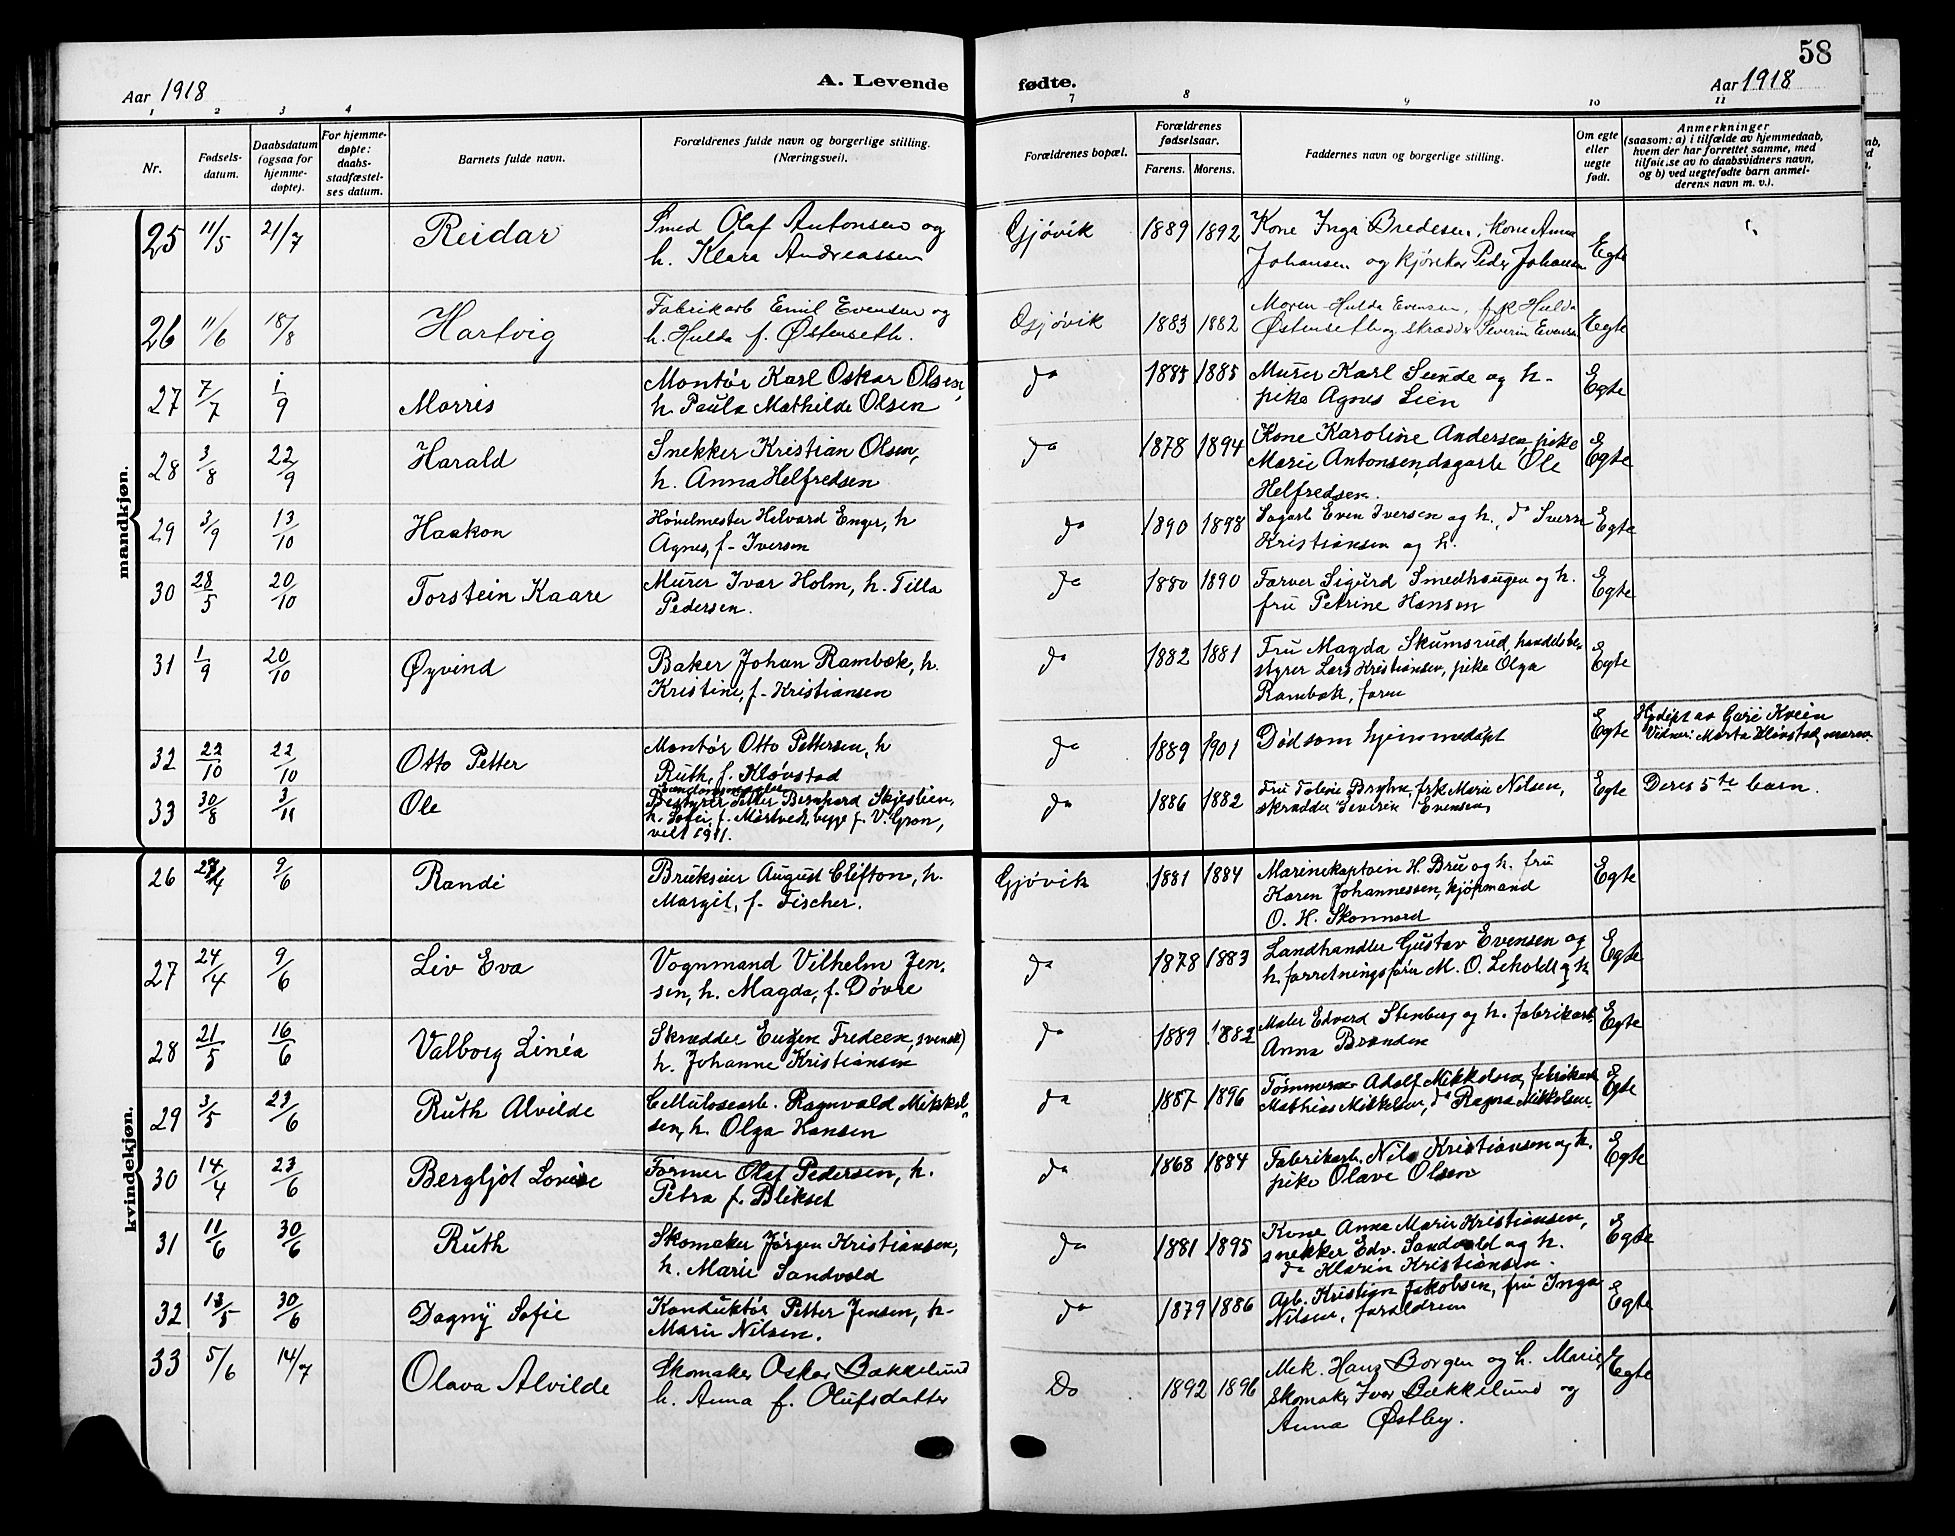 58
Aar 1918
A. Levende fødte.
Aar 1918
1 2 3 4 7 8 9 10 11
Nr.
Fødsels-
datum.
Daabsdatum
(ogsaa for
hjemme-
døpte).
For hjemme-
døpte:
daabs-
stadfæstel-
ses datum.
Barnets fulde navn.
Forældrenes fulde navn og borgerlige stilling.
(Næringsvei).
Forældrenes bopæl.
Forældrenes
fødselsaar.
Farens. Morens.
Faddernes navn og borgerlige stilling.
Om egte
eller
uegte
født.
Anmerkninger
(saasom: a) i tilfælde av hjemmedaab,
hvem der har forrettet samme, med
tilføielse av to daabsvidners navn,
og b) ved uegtefødte barn anmel-
derens navn m. v.).
mandkjøn.
25 11/5 21/7 Reidar
Smed Olaf Antonsen og
h. Klara Andreassen
Gjøvik 1889 1892
Kone Inga Bredesen, kone Anna
Johansen og kjørekar Peder Johansen
Egte
26 11/6 18/8 Hartvig
Fabrikarb Emil Evensen og
h. Hulda f. Østenseth.
Gjøvik 1883 1882
Moren Hulda Evensen, frk Hulda
Østenseth og skrædder Severin Evensen
Egte
27 7/7 1/9 Morris
Montør Karl Oskar Olsen,
h. Paula Mathilde Olsen
do 1885 1885
Murer Karl Sunde og h.
pike Agnes Lien
Egte
28 3/8 22/9 Harald
Snekker Kristian Olsen,
h. Anna Helfredsen
do 1878 1894
Kone Karoline Andersen, pike
Marie Antonsen, dagarb Ole
Helfredsen.
Egte
29 3/9 13/10 Haakon
Høvelmester Helvard Enger, h
Agnes, f. Iversen
do 1890 1898
Sagarb Even Iversen og h., do Sverre
Kristiansen og h.
Egte
30 28/5 20/10 Torstein Kaare
Murer Ivar Holm, h. Tilla
Pedersen.
do 1880 1890
Farver Sigurd Smedhaugen og h.
fru Petrine Hansen
Egte
31 1/9 20/10 Øyvind
Baker Johan Rambæk, h.
Kristine, f. Kristiansen
do 1882 1881
Fru Magda Skumsrud, handelsbe-
styrer Lars Kristiansen, pike Olga
Rambæk, faren
Egte
32 22/10 22/10 Otto Petter
Montør Otto Pettersen, h
Ruth, f. Kløvstad
do 1889 1901
Død som hjemmedøpt
Egte
Hjdøpt av Guri Kveen
Vidner: Marta Kløvstad, moren
33 30/8 3/11 Ole
Bestyrer Petter Bernhard Skjeslien,
h. Sofie, f. Mørtvedt, begge f. V. Gran,
viet 1911.
do 1886 1882
Fru Toline Bryhn, frk Marie Nilsen,
skrædder Severin Evensen,
Egte
Deres 5te barn.
kvindekjøn.
26 9/6 Randi
Brukseier August Clifton, h.
Margit, f. Fischer.
Gjøvik 1881 1884
Marinekaptein H. Bru og h. fru
Karen Johannessen, kjøpmand
O. H. Skonnord
Egte
27 24/4 9/6 Liv Eva
Vognmand Vilhelm Jen-
sen, h. Magda, f. Døvre
do 1878 1883
Landhandler Gustav Evensen og
h. forretningsfører M. O. Leholdt og h
Egte
28 21/5 16/6 Valborg Linéa
Skrædder Eugen Fredeen, svensk)
h. Johanne Kristiansen
do 1889 1882
Maler Edvard Stenberg og h. fabrikarb.
Anna Brænden
Egte
29 3/5 23/6 Ruth Alvilde
Cellulosearb. Ragnvald Mikkel-
sen, h. Olga Hansen
do 1887 1896
Tømmerm Adolf Mikkelsen, fabrikarb
Mathias Mikkelsen, do Ragna Mikkelsen.
Egte
30 14/4 23/6 Bergljot Lovise
Former Olaf Pedersen, h.
Petra f. Blikset
do 1868 1884
Fabrikarb. Nils Kristiansen og h.
pike Olave Olsen
Egte
31 11/6 30/6 Ruth
Skomaker Jørgen Kristiansen,
h. Marie Sandvold
do 1881 1895
Kone Anna Marie Kristiansen,
snekker Edv. Sandvold og h.
do Klarin Kristiansen.
Egte
32 13/5 30/6 Dagny Sofie
Konduktør Petter Jensen, h.
Marie Nilsen.
do 1879 1886
Arb. Kristian Jakobsen, fru Inga
Nilsen, forældrene
Egte
33 5/6 14/7 Olava Alvilde
Skomaker Oskar Bækkelund
h. Anna f. Olufsdatter
Do 1892 1896
Mek. Hans Borgen og h. Marie,
Skomaker Ivar Bækkelund og
Anna Østby.
Egte